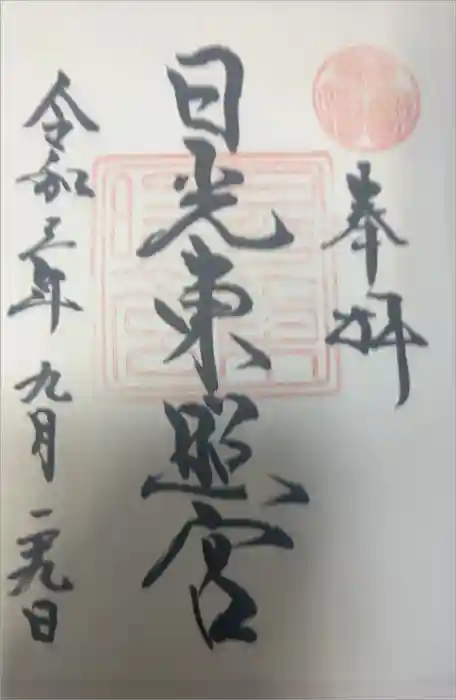 奉拝
日光東照宮
令和三年九月二十九日